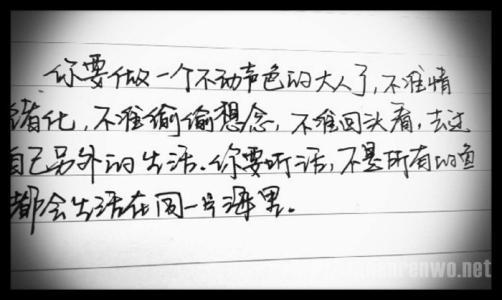 你要做一个不动声色的大人了,不准情
绪化,不准偷偷想念,不准回头看,去过
自己另外的生活.你要听话,不是所有的鱼
都会生活在同一片海里。
renwo.net